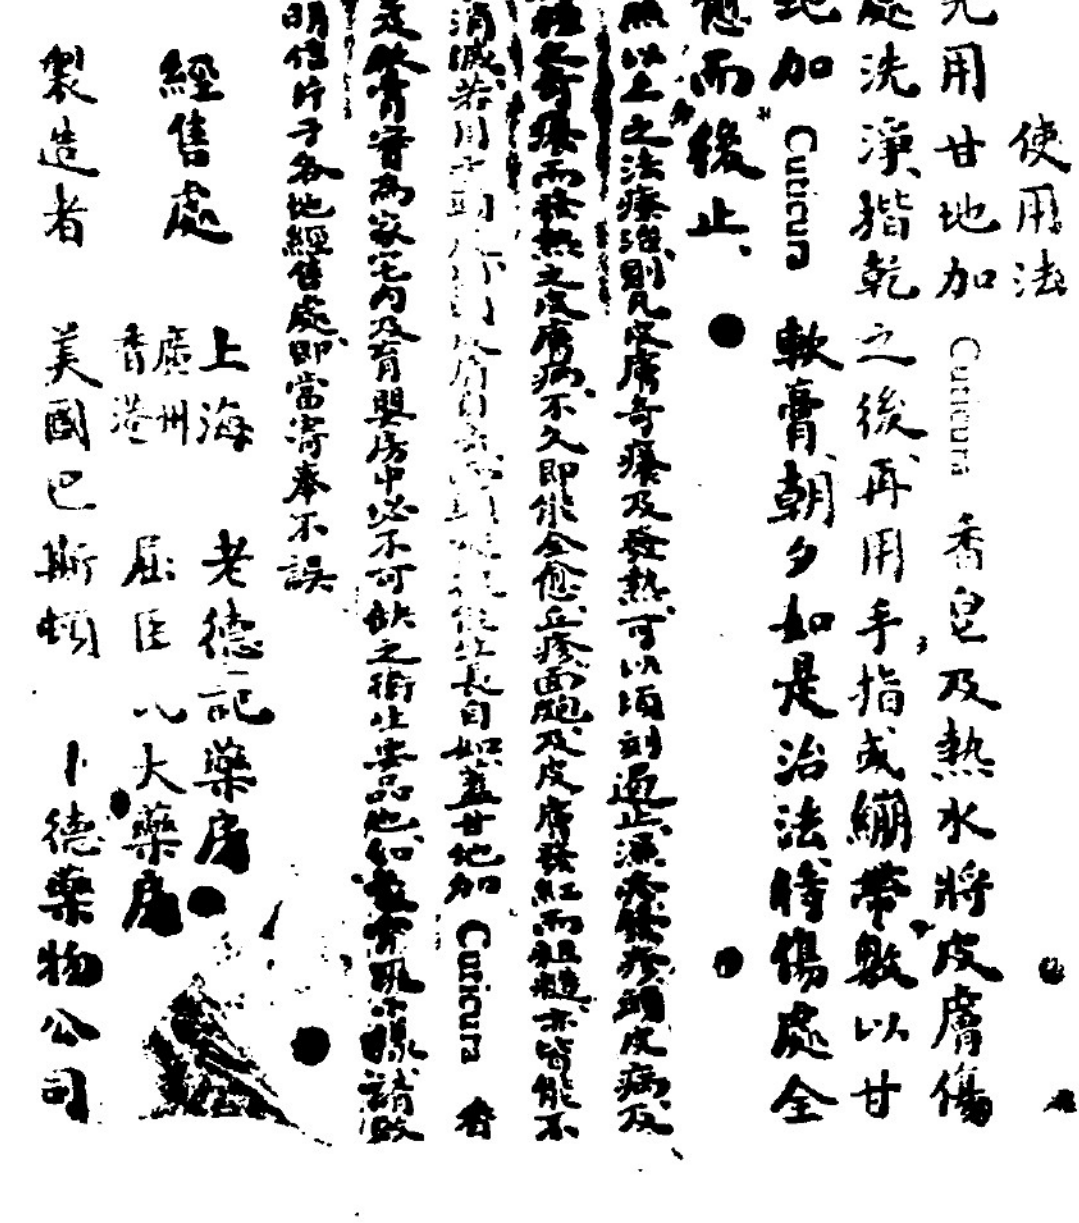 使用法
先用甘地加 Cuticura 香皂及熱水將皮膚傷
處洗淨揩乾之後再用手指或繃帶敷以甘
地加 Cuticura 軟膏朝夕如是治法待傷處全
愈而後止
照以上之法療治則凡皮膚奇癢及發熱可以頃刻遏止濕疹 疹頭皮病及
種之奇癢而發熱之皮膚病不久即能全愈丘疹面皰及皮膚發紅而粗糙亦皆能不
消滅若用 長自如蓋甘地加 Cuticura 香
及軟膏實為家宅內及育嬰房中必不可缺之衛生要品也如 樣請啟
明信片于各地經售處即當寄奉不誤
經售處 上海 老德記藥房
廣州 香港 屈臣氏大藥房
製造者 美國巴斯頓 卜德藥物公司